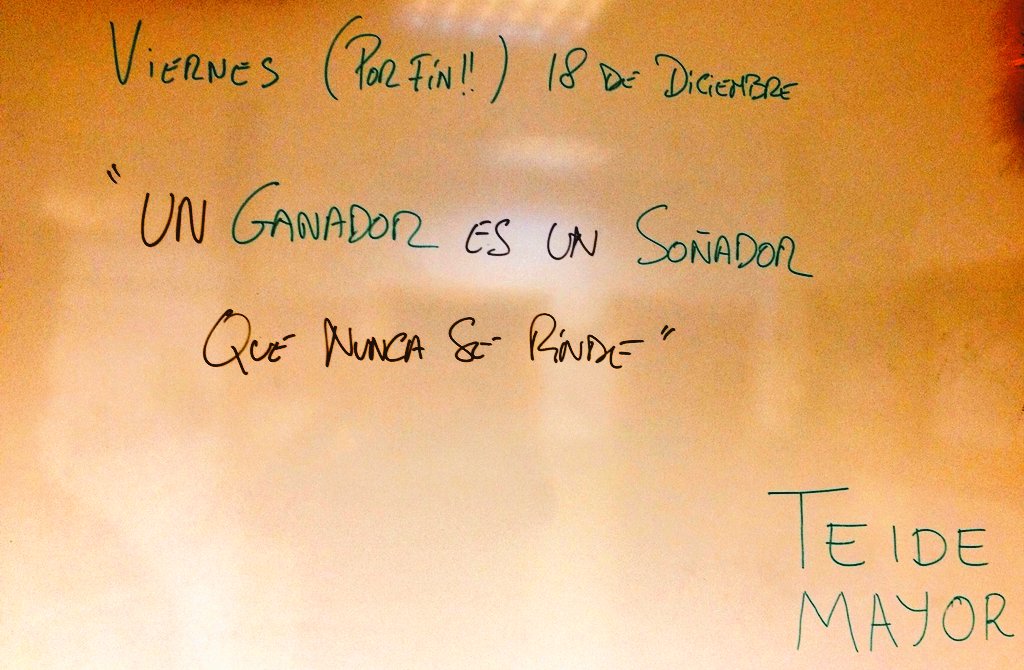 VIERNES (POR FIN!!) 18 DE DICIEMBRE
"UN GANADOR ES UN SOÑADOR
QUE NUNCA SE RINDE"
TEIDE
MAYOR